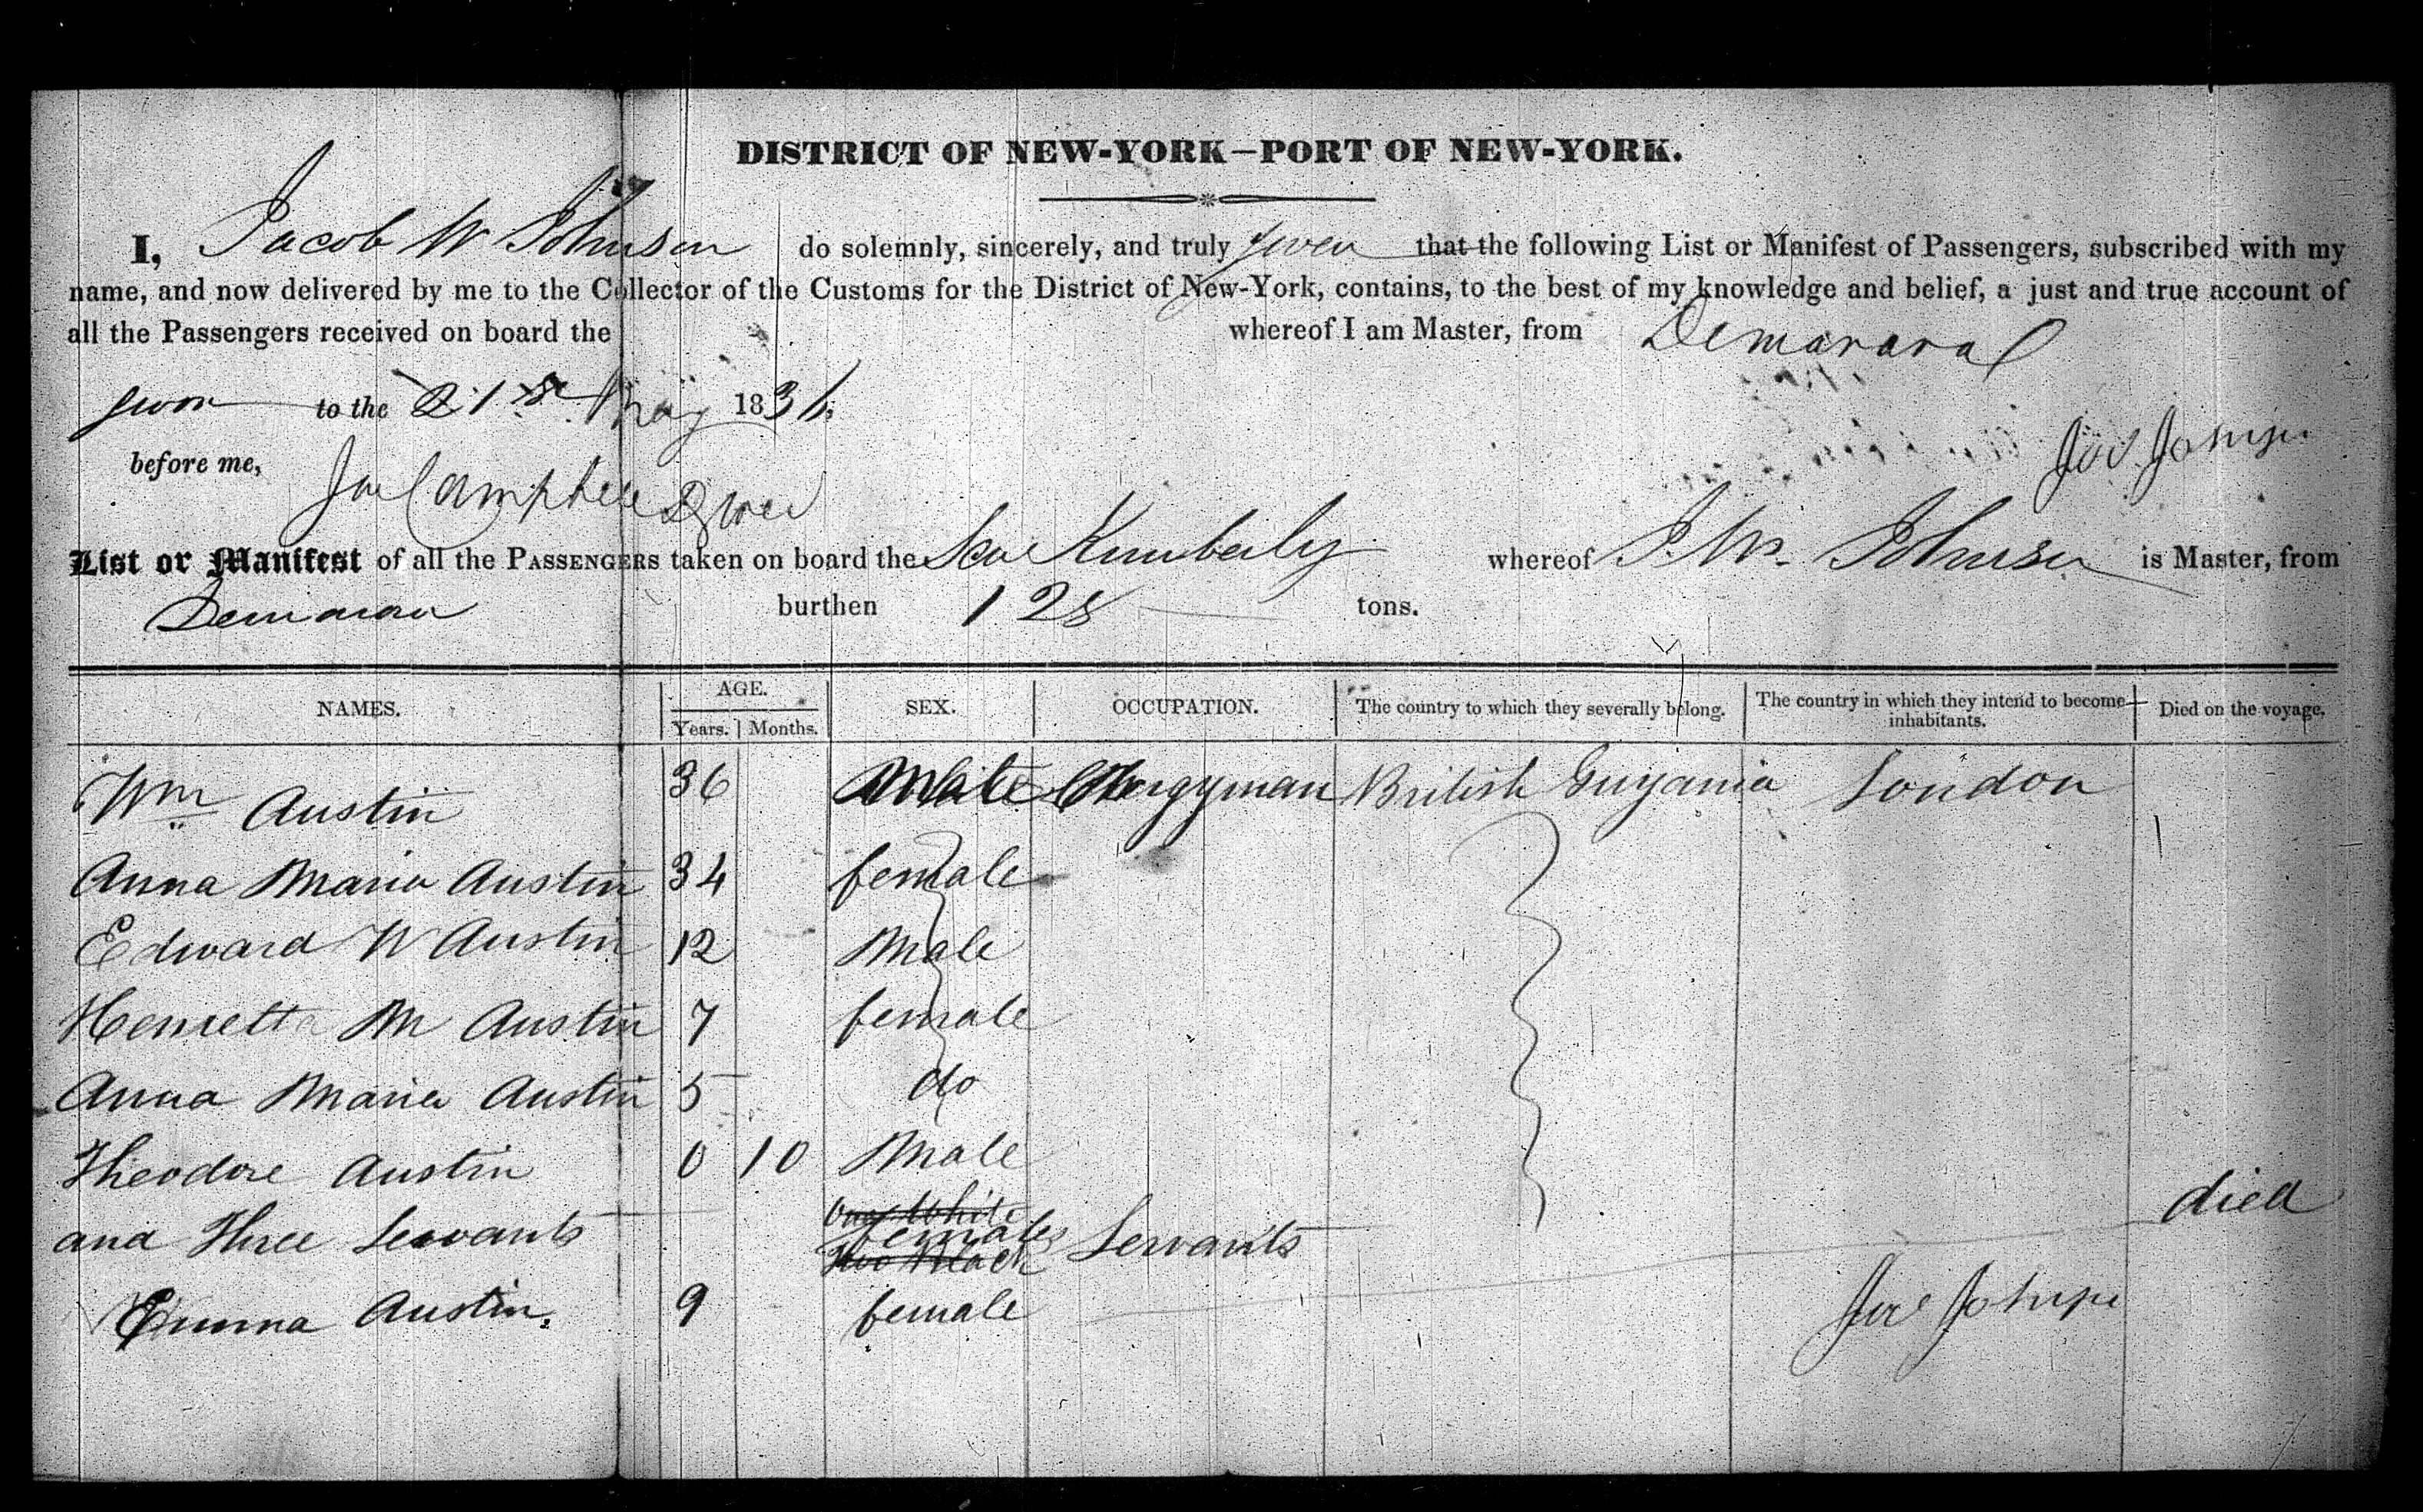 DISTRICT OF NEW-YORK—PORT OF NEW-YORK.
I, Jacob W Johnson do solemnly, sincerely, and truly swear that the following List or Manifest of Passengers, subscribed with my
name, and now delivered by me to the Collector of the Customs for the District of New-York, contains, to the best of my knowledge and belief, a just and true account of
all the Passengers received on board the whereof I am Master, from Demarara
swor to the 21st May 1836
before me,
List or Manifest of all the PASSENGERS taken on board the Kimberly whereof J. W. Johnson is Master, from
Demarara burthen 128 tons.
NAMES. AGE. Years. Months. SEX. OCCUPATION. The country to which they severally belong. The country in which they intend to become inhabitants. Died on the voyage.
Wm Austin 36 Male Clergyman British Guyania London
Anna Maria Austin 34 female
Edward W Austin 12 Male
Henrietta M Austin 7 female
Anna Maria Austin 5 do
Theodore Austin 0 10 Male
One White
and Three Servants females Servants died
Two Black
Emma Austin. 9 female